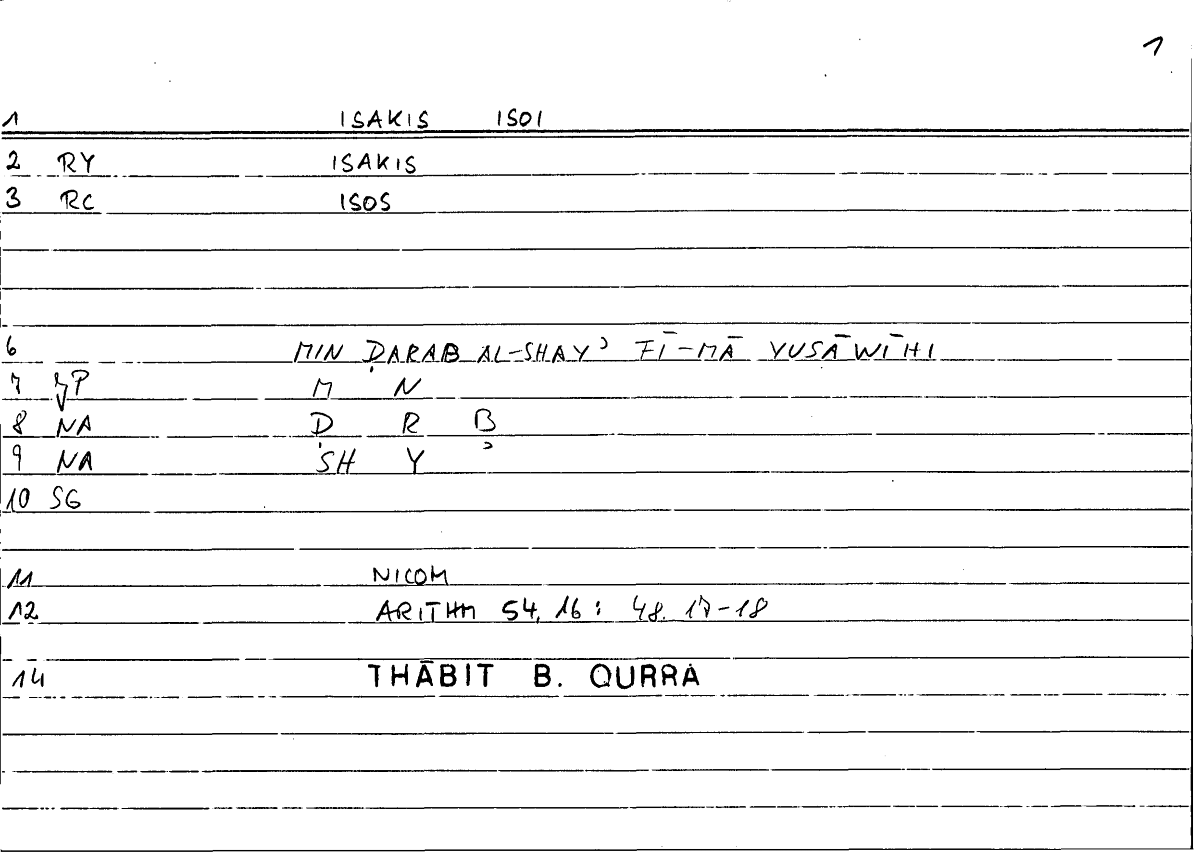 1
1 ISAKIS ISOI
2 RY ISAKIS
3 RC ISOS
6 MIN ḌARAB AL-SHAYʾ FĪ-MĀ YUSĀWĪHI
7 M N
8 NA Ḍ R B
9 NA SH Y ʾ
10 SG
11 NICOM
12 ARITHM 54, 16 : 48. 17-18
14 THĀBIT B. QURRA